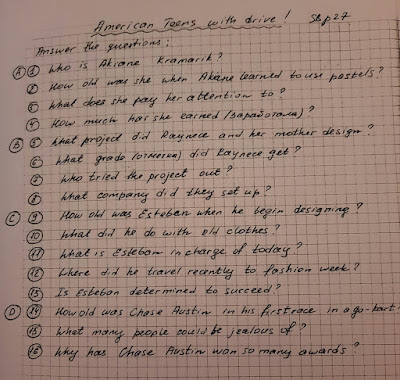 American Teens with drive! SB p27
Answer the questions:
A 1 Who is Akiane Kramarik?
2 How old was she when Akane learned to use pastels?
3 What does she pay her attention to?
4 How much has she earned (заработала)?
B 5 What project did Raynece and her mother design?
6 What grade (отметка) did Raynece get?
7 Who tried the project out?
8 What company did they set up?
C 9 How old was Esteban when he begin designing?
10 What did he do with old clothes?
11 What is Esteban in charge of today?
12 Where did he travel recently to fashion week?
13 Is Esteban determined to succeed?
D 14 How old was Chase Austin in his first race in a go-kart
15 What many people could be jealous of?
16 Why has Chase Austin won so many awards?